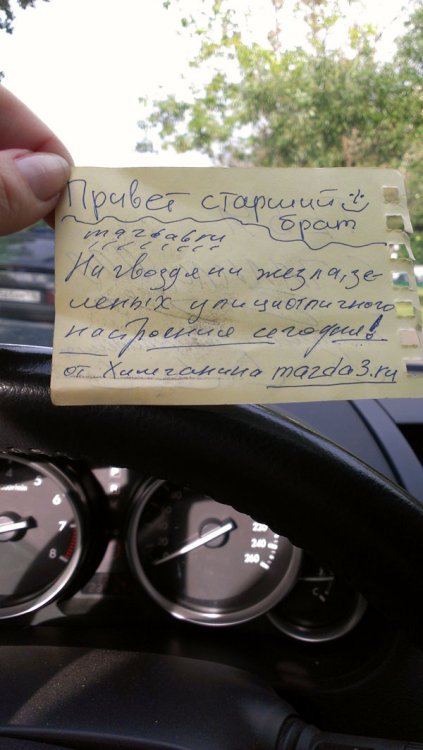 Привет старший :)
брат
тачвавки
Ни гвоздя ни жезла, зе
леных улиц и отличного
настроение сегодня!
от Химчанина mazda3.ru
5
6
7
8
220
240
260